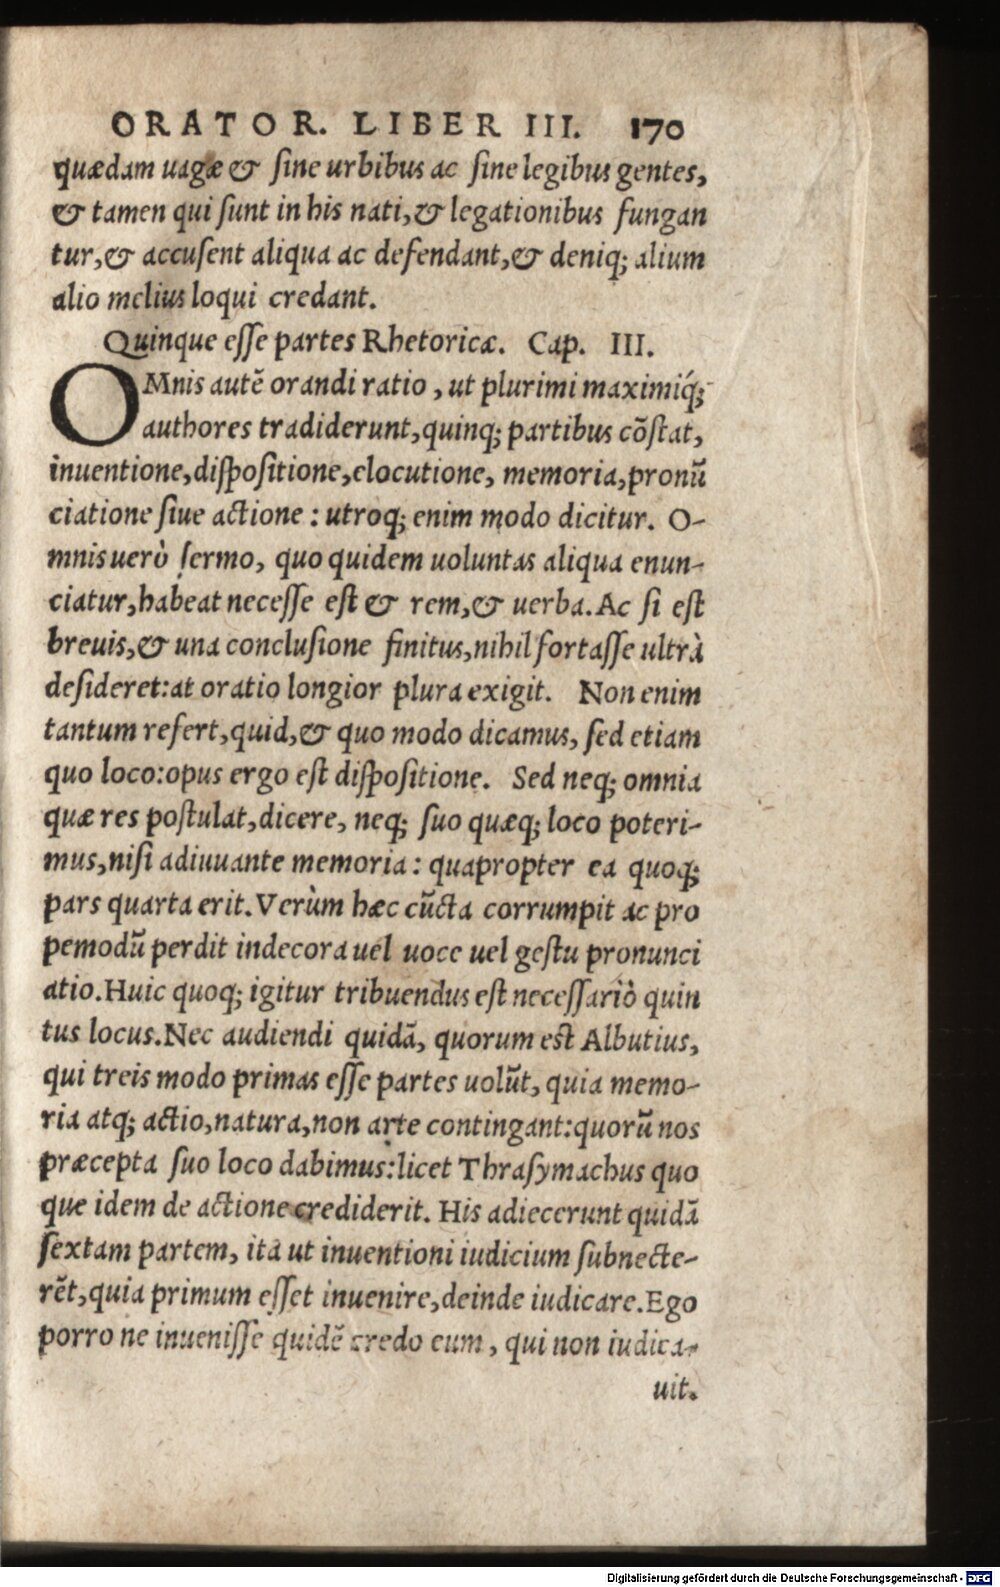 ORATOR. LIBER III. 170
quædam uagæ & sine urbibus ac sine legibus gentes,
& tamen qui sunt in his nati, & legationibus fungan
tur, & accusent aliqua ac defendant, & deniq; alium
alio melius loqui credant.
Quinque esse partes Rhetoricæ. Cap. III.
OMnis autē orandi ratio, ut plurimi maximiq́;
authores tradiderunt, quinq; partibus cōstat,
inuentione, dispositione, elocutione, memoria, pronū
ciatione siue actione : utroq; enim modo dicitur. O-
mnis uerò sermo, quo quidem uoluntas aliqua enun-
ciatur, habeat necesse est & rem, & uerba. Ac si est
breuis, & una conclusione finitus, nihil fortasse ultrà
desideret: at oratio longior plura exigit. Non enim
tantum refert, quid, & quo modo dicamus, sed etiam
quo loco: opus ergo est dispositione. Sed neq; omnia
quæ res postulat, dicere, neq; suo quæq; loco poteri-
mus, nisi adiuuante memoria : quapropter ea quoq;
pars quarta erit. Verùm hæc cūcta corrumpit ac pro
pemodū perdit indecora uel uoce uel gestu pronunci
atio. Huic quoq; igitur tribuendus est necessariò quin
tus locus. Nec audiendi quidā, quorum est Albutius,
qui treis modo primas esse partes uolūt, quia memo-
ria atq; actio, natura, non arte contingant: quorū nos
præcepta suo loco dabimus: licet Thrasymachus quo
que idem de actione crediderit. His adiecerunt quidā
sextam partem, ita ut inuentioni iudicium subnecte-
rēt, quia primum esset inuenire, deinde iudicare. Ego
porro ne inuenisse quidē credo eum, qui non iudica-
uit.
Digitalisierung gefördert durch die Deutsche Forschungsgemeinschaft - DFG